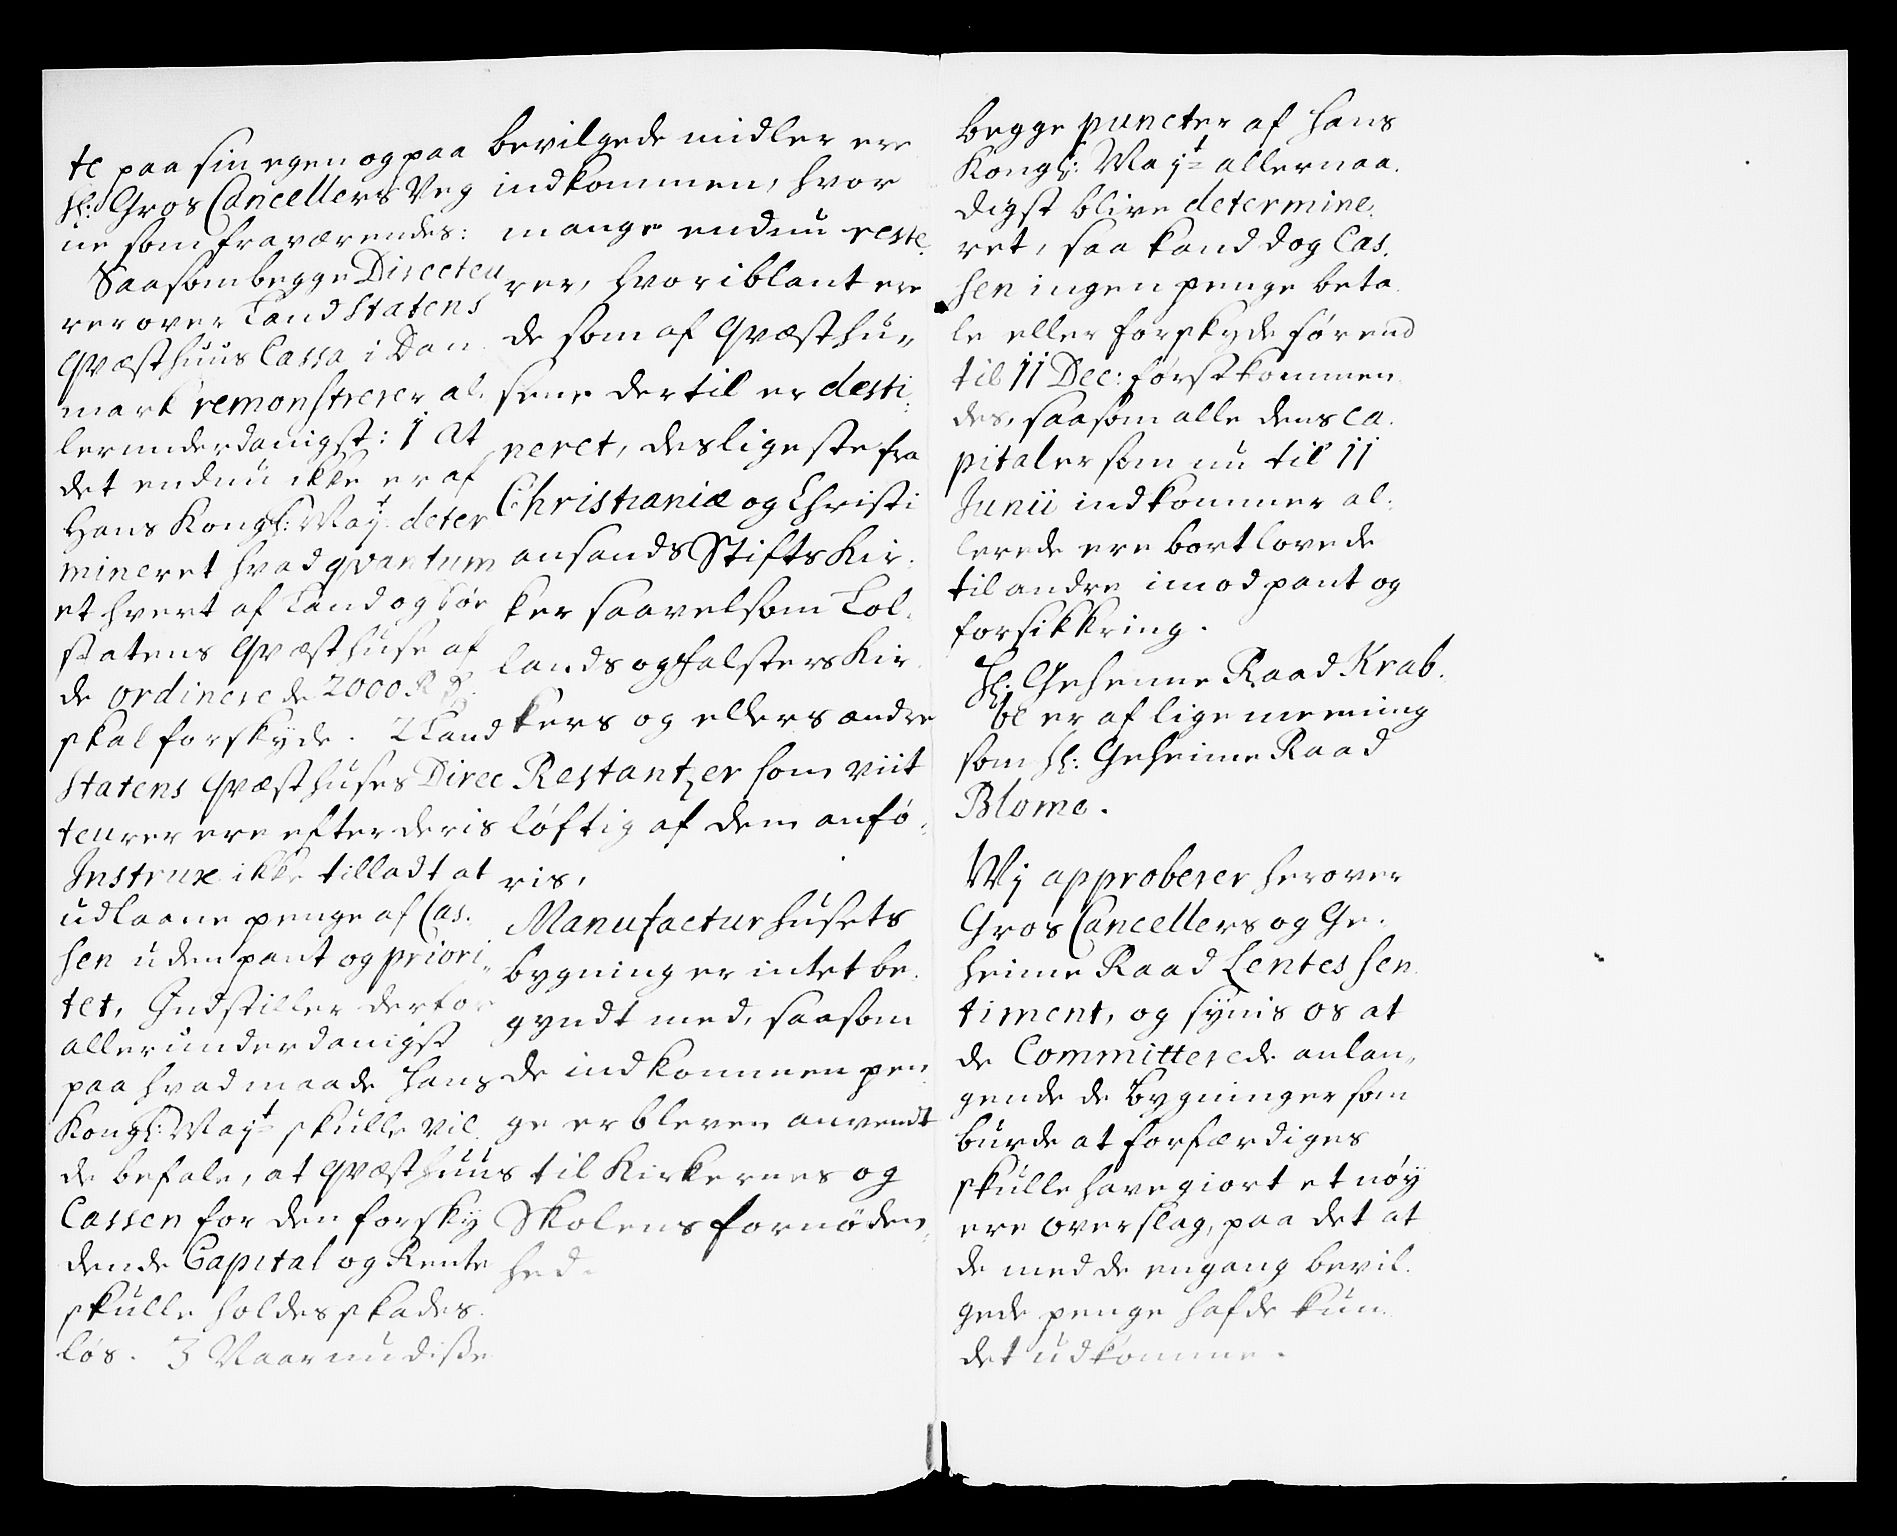 te paa sin egen og paa
Hl: Gros Cancellers Veg
ne som fraværendes:
Saasom begge Directeu
rer over Land Statens
Qvæsthuus Cassa i Dan
mark remonstrerer al
lerunderdanigst: 1 at
det endnu ikke er af
Hans Kongl: Mayt. deter
mineret hvad qvantum
et hvert af Land og Søe
statens Qvæsthuse af
de ordinerede 2000 Rd
skal forskyde. 2 Land
Statens Qvæsthuses Direc
teurer ere efter deris
Instrux ikke tilladt at
udlaane penge af Cas.
sen uden pant og priori
tet, Indstiller derfor
allerunderdanigst
paa hvad maade Hans
Kongl: Mayt skulle vil
de befale, at Qvæsthuus
Cassen for den forsky
dende Capital og Rente
skulle holdes skades
løs. 3 Naar nu disse
bevilgede midler ere
indkommen, hvor
mange endnu reste
rer, hvoriblant ere
de som af Qvæsthu„
sene dertil er desti
neret, desligeste fra
Christianiæ og Christi
ansands Stifts Kir.
ker saavelsom Lol.
lands og Falsters Kir
kers og ellers andre
Restantzer som viit
løftig af dem anfø
ris,
Manufacturhusets
bygning er intet be.
gyndt med, saasom
de indkommen pen
ge er bleven anvendt
til Kirkernes og
Skolens fornøden
hed.
begge puncter af Hans
Kongl: Mayt allernaa.
digst blive determine.
ret, saa kand dog Cas.
sen ingen penge beta
le eller forskyde før end
til 11 Dec: førstkommen
des, saasom alle dens ca.
pitaler som nu til 11
Junii indkommer al.
lerede ere bortlovede
til andre imod pant og
forsikkring.
Hl: Geheime Raad Krab.
be er af lige meening
som Hl: Geheime Raad
Blome.
Wj approberer herover
Gros Cancellers og Ge.
heime Raad Lentes sen
timent, og synis os at
de Committerede anlan„
gende de bygninger som
burde at forfærdiges
skulle have giort et nøy
ere overslag, paa det at
de med de engang bevil.
gede penge hafde kun
det udkomme.